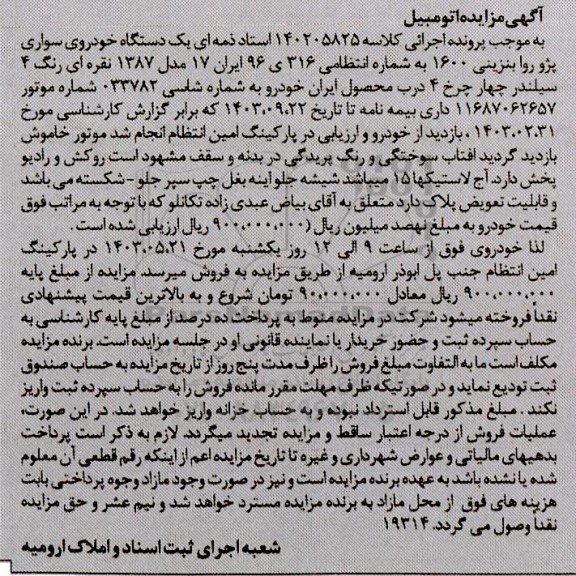 آگهی مزایده اتومبیل
به موجب پرونده اجرائی کلاسه ۱۴۰۲۰۵۸۲۵ استاد ذمه ای یک دستگاه خودروی سواری
پژو روا بنزینی ۱۶۰۰ به شماره انتظامی ۳۱۶ ی ۹۶ ایران ۱۷ مدل ۱۳۸۷ نقره ای رنگ ۴
سیلندر چهار چرخ ۴ درب محصول ایران خودرو به شماره شاسی ۰۳۳۷۸۲ شماره موتور
۱۱۶۸۷۰۶۲۶۵۷ داری بیمه نامه تا تاریخ ۱۴۰۳.۰۹.۲۲ که برابر گزارش کارشناسی مورخ
۱۴۰۳.۰۲.۳۱ ، بازدید از خودرو و ارزیابی در پارکینگ امین انتظام انجام شد موتور خاموش
بازدید گردید افتاب سوختگی و رنگ پریدگی در بدنه و سقف مشهود است روکش و رادیو
پخش دارد. آج لاستیکها ۱۵٪ می باشد شیشه جلو اینه بغل چپ سپر جلو - شکسته می باشد
و قابلیت تعویض پلاک دارد متعلق به آقای بیاض عبدی زاده تکانلو که با توجه به مراتب فوق
قیمت خودرو به مبلغ نهصد میلیون ریال (۹۰۰،۰۰۰،۰۰۰ ریال ارزیابی شده است .
لذا خودروی فوق از ساعت ۹ الی ۱۲ روز یکشنبه مورخ ۱۴۰۳.۰۵.۲۱ در پارکینگ
امین انتظام جنب پل ابوذر ارومیه از طریق مزایده به فروش میرسد. مزایده از مبلغ پایه
۹۰۰،۰۰۰،۰۰۰ ریال معادل ۹۰،۰۰۰،۰۰۰ تومان شروع و به بالاترین قیمت پیشنهادی
نقداً فروخته میشود شرکت در مزایده منوط به پرداخت ده درصد از مبلغ پایه کارشناسی به
حساب سپرده ثبت و حضور خریدار یا نماینده قانونی او در جلسه مزایده است. برنده مزایده
مکلف است ما به التفاوت مبلغ فروش را ظرف مدت پنج روز از تاریخ مزایده به حساب صندوق
ثبت تودیع نماید و در صورتیکه ظرف مهلت مقرر مانده فروش را به حساب سپرده ثبت واریز
نکند . مبلغ مذکور قابل استرداد نبوده و به حساب خزانه واریز خواهد شد. در این صورت،
عملیات فروش از درجه اعتبار ساقط و مزایده تجدید میگردد. لازم به ذکر است پرداخت
بدهیهای مالیاتی و عوارض شهرداری و غیره تا تاریخ مزایده اعم از اینکه رقم قطعی آن معلوم
شده یا نشده باشد به عهده برنده مزایده است و نیز در صورت وجود مازاد وجوه پرداختی بابت
هزینه های فوق از محل مازاد به برنده مزایده مسترد خواهد شد و نیم عشر و حق مزایده
نقداً وصول می گردد. ۱۹۳۱۴
شعبه اجرای ثبت اسناد و املاک ارومیه